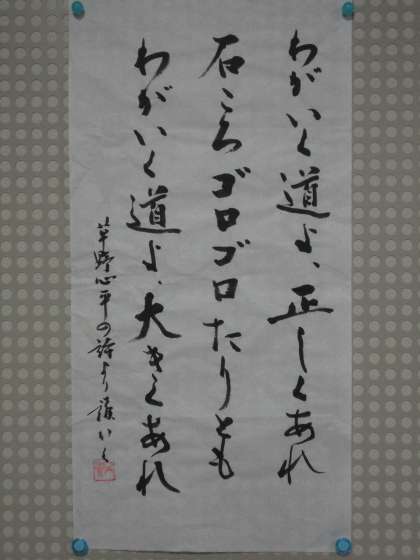 わがいく道よ、正しくあれ
石ころゴロゴロたりとも
わがいく道よ、大きくあれ
草野心平の詩より